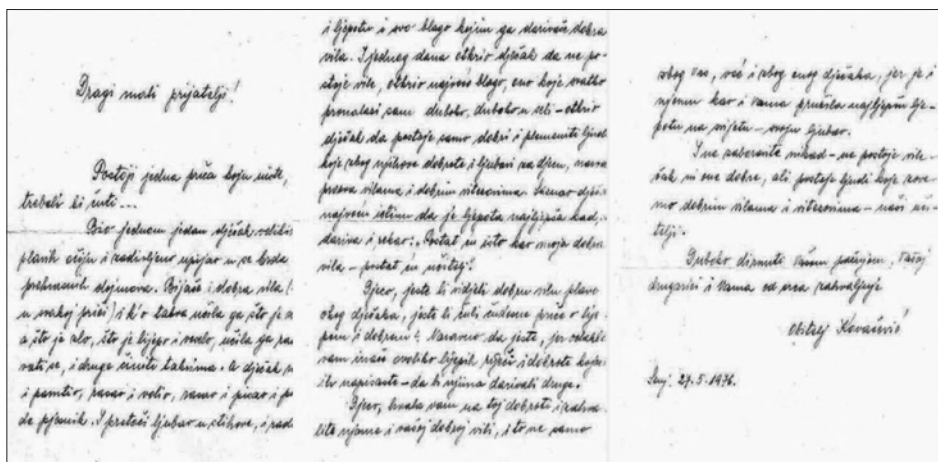 Dragi mali prijatelji!
Postoji jedna priča koju niste,
trebali bi čuti...
Bio jednom jedan dječak velikih
plavih očiju i zadivljeno upijao u se brda
prekrasnih dojmova. Bijaše i dobra vila (
u svakoj priči) i k'o takva učila ga što je
a što je zlo, što je lijepo i veselo, učila ga
vati se, i druge činiti takvima. A dječak
i pamtio, rastao i volio, sanjao i pisao i
de pjesnik. I pretoči ljubav u stihove, i
i ljepotu i svo blago kojim ga darivaše dobra
vila. I jednog dana otkrio dječak da ne po-
stoje vile, otkrio najveće blago, ono koje svatko
pronalazi sam duboko, duboko u sebi - otkrio
dječak da postoje samo dobri i plemeniti ljudi
koje zbog njihove dobrote i ljubavi za djecu, narod
prozva vilama i dobrim vitezovima. Saznao dječak
najveću istinu da je ljepota najljepša kad
dariva i rekao: „Postat ću isto kao moja dobra
vila - postat ću učitelj."
Djeco, jeste li vidjeli dobru vilu plavo-
okog dječaka, jeste li čuli čudesne priče o lije-
pom i dobrom? Naravno da jeste, jer odakle
vam inače ovoliko lijepih riječi i dobrote koje
ste napisali - da bi njima darivali druge.
Djeco, hvala vam na toj dobroti i zahva-
lite njome i vašoj dobroj vili, i to ne samo
zbog vas, već i zbog onog dječaka, jer je i
njemu kao i vama pružila najljepšu lje-
potu na svijetu - svoju ljubav.
I ne zaboravite nikad - ne postoje vile
čak ni one dobre, ali postoje ljudi koje zove-
mo dobrim vilama i vitezovima - naši uči-
telji.
Duboko dirnut Vašom pažnjom, Vašoj
drugarici i Vama od srca zahvaljuje
Kovačević
Senj, 27.5.1976.